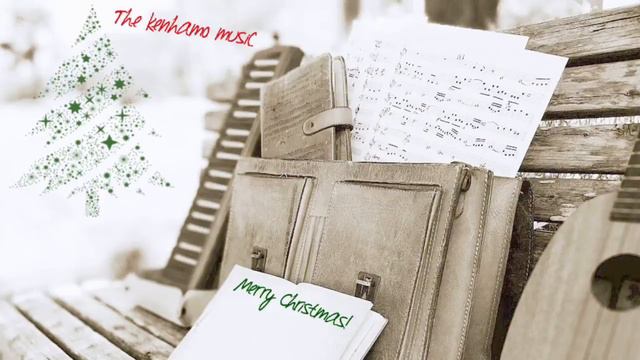 The kenhamo music
Merry Christmas!